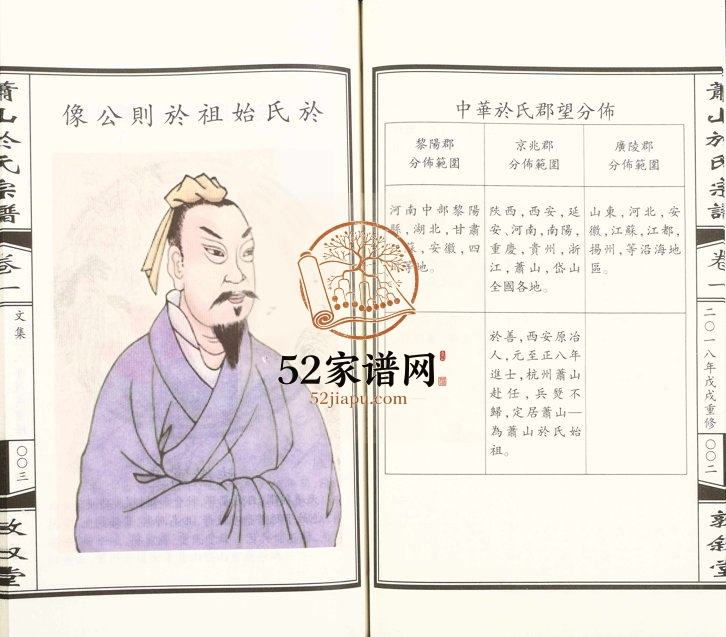 於氏始祖於則公像
蕭山於氏宗譜
卷一
文集
〇〇三
堂
中華於氏郡望分佈
黎陽郡
分佈範圍
京兆郡
分佈範圍
廣陵郡
分佈範圍
河南中部黎陽
縣,湖北,甘肅
蘇,安徽,四
等地。
陝西,西安,延
安,河南,南陽,
重慶,貴州,浙
江,蕭山,岱山
全國各地。
山東,河北,安
徽,江蘇,江都,
揚州,等沿海地
區。
於善,西安原冶
人,元至正八年
進士,杭州蕭山
赴任,兵燹不
歸,定居蕭山—
為蕭山於氏始
祖。
蕭山於氏宗譜
卷一
二〇一八年戊戌重修
〇〇二
敦敘堂
52家谱网
52jiapu.com